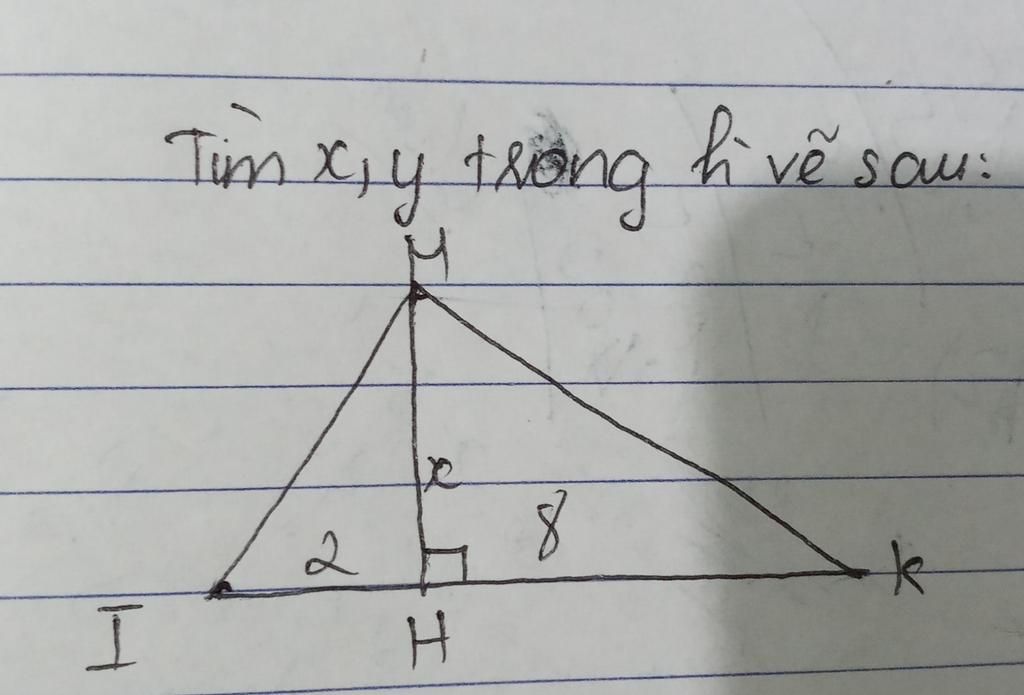 Tìm x, y trong hì vẽ sau:
M
x
2 8
I H K